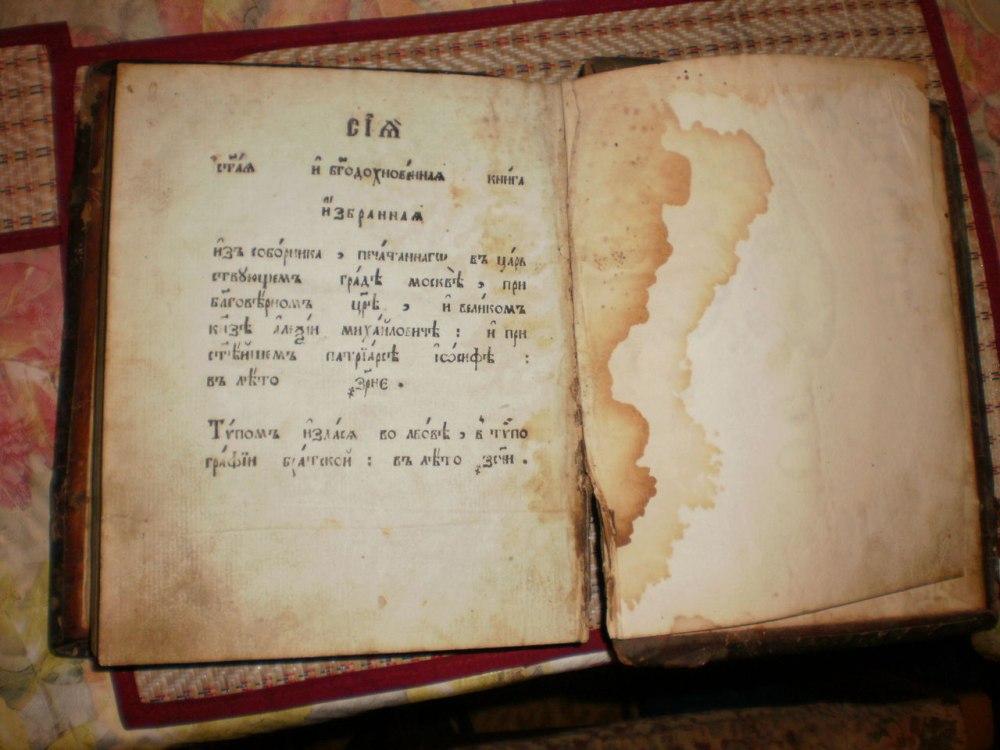 СІѦ
ст҃аѧ и҆ бг҃одохнове́ннаѧ кни́га
и҆збраннаѧ
и҆зъ собо́рника , печа́таннагѡ въ ца́рь
ствꙋющемъ гра́дѣ москвѣ̀ , при
бл҃говѣ́рномъ цр҃ѣ́ , и҆ вели́комъ
кн҃зѣ а҆леѯі́и миха́йловичѣ : и҆ при
ст҃ѣ́йшемъ патрїа́рсѣ і҆ѡ́сифѣ :
въ лѣ́то ҂зрне .
Тѵ́помъ и҆зда́сѧ во льво́вѣ , в̾ тѵ́по
гра́фїи бра́тской : въ лѣ́то ҂зсчи .